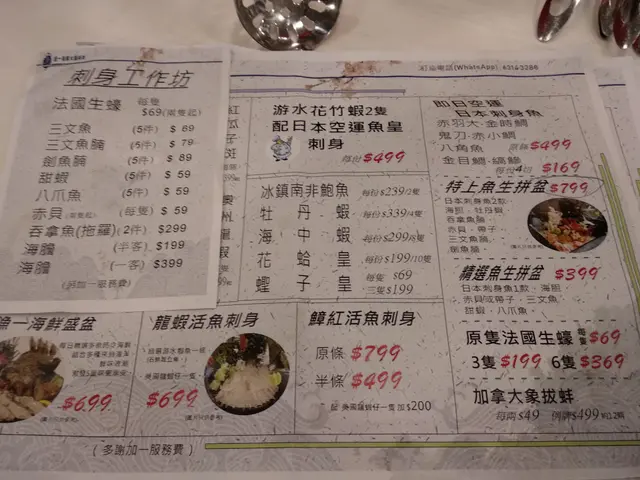 刺身工作坊
法國生蠔 每隻 $69(兩隻起)
三文魚 (5件) $ 69
三文魚腩 (5件) $ 79
劍魚腩 (5件) $ 89
甜蝦 (5件) $ 59
八爪魚 (5件) $ 59
赤貝(兩隻起) (每隻) $ 59
吞拿魚(拖羅) 2件) $299
海膽 (半客) $199
海膽 (一客) $399
(另加一服務費)
訂座電話(WhatsApp)
游水花竹蝦2隻
配日本空運魚皇
刺身
每份 $499
冰鎮南非鮑魚 每份 $239/2隻
牡丹蝦 每份 $339/4隻
海中蝦 每份 $299/8隻
花蛤皇 每份 $199/10隻
蟶子皇 每隻 $69
三隻 $199
即日空運
日本刺身魚
赤羽太·金時鯛
鬼刃·赤小鯛
八角魚 $499
金目鯛·縞鰺
$169
特上魚生拼盆 $799
日本刺身魚2款
海膽、牡丹蝦
吞拿魚腩、
赤貝、帶子、
三文魚腩、
劍魚腩、
精選魚生拼盆 $399
日本刺身魚1款、海膽
赤貝或帶子、三文魚
甜蝦、八爪魚、
原隻法國生蠔 每隻 $69
3隻 $199 6隻 $369
加拿大象拔蚌
每兩 $49 例牌 $499 約12兩
魚一海鮮盛盆
$699
龍蝦活魚刺身
$699
鱆紅活魚刺身
原條 $799
半條 $499
配 美國龍蝦仔一隻 加 $200
(多謝加一服務費)